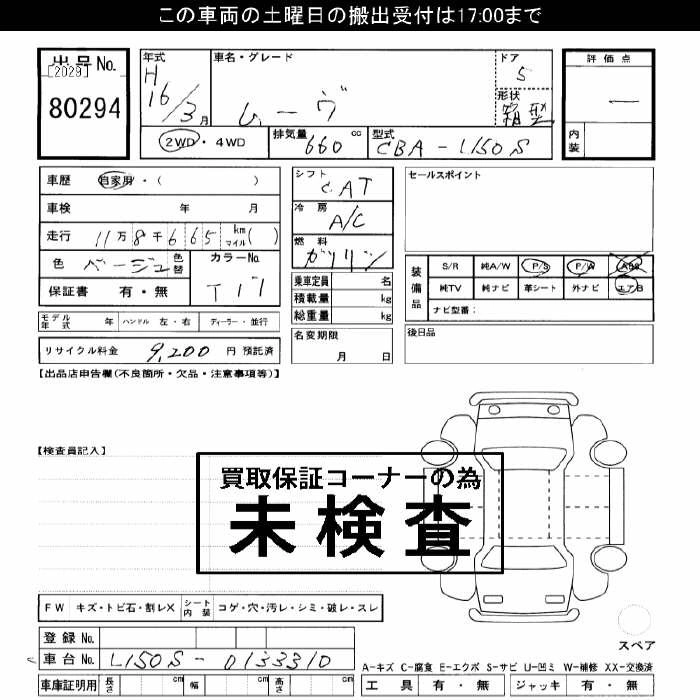 この車両の土曜日の搬出受付は17:00まで
出品No.
[2029]
80294
年式
H
16/3月
車名・グレード
ムーヴ
ドア
5
形状
箱型
評価点
内装
2WD・4WD
排気量
660 cc
型式
CBA-L150S
車歴 自家用・( )
車検 年 月
走行 11万8千665 km マイル( )
色 ベージュ 色替
カラーNo.
T17
保証書 有・無
モデル年式 年 ハンドル 左・右 ディーラー・並行
リサイクル料金 9,200 円 預託済
シフト
CAT
冷房
A/C
燃料
ガソリン
乗車定員 名
積載量 kg
総重量 kg
名変期限
月 日
セールスポイント
装備品
S/R 純A/W P/S P/W ABS
純TV 純ナビ 革シート 外ナビ エアB
ナビ型番:
後日品
【出品店申告欄(不良箇所・欠品・注意事項等)】
【検査員記入】
買取保証コーナーの為
未検査
FW キズ・トビ石・割レX シート内装 コゲ・穴・汚レ・シミ・破レ・スレ
登録No.
車台No. L150S-0133310
車庫証明用 長さ cm 幅 cm 高さ cm
スペア
A-キズ C-腐食 E-エクボ S-サビ U-凹ミ W-補修 XX-交換済
工具 有・無 ジャッキ 有・無